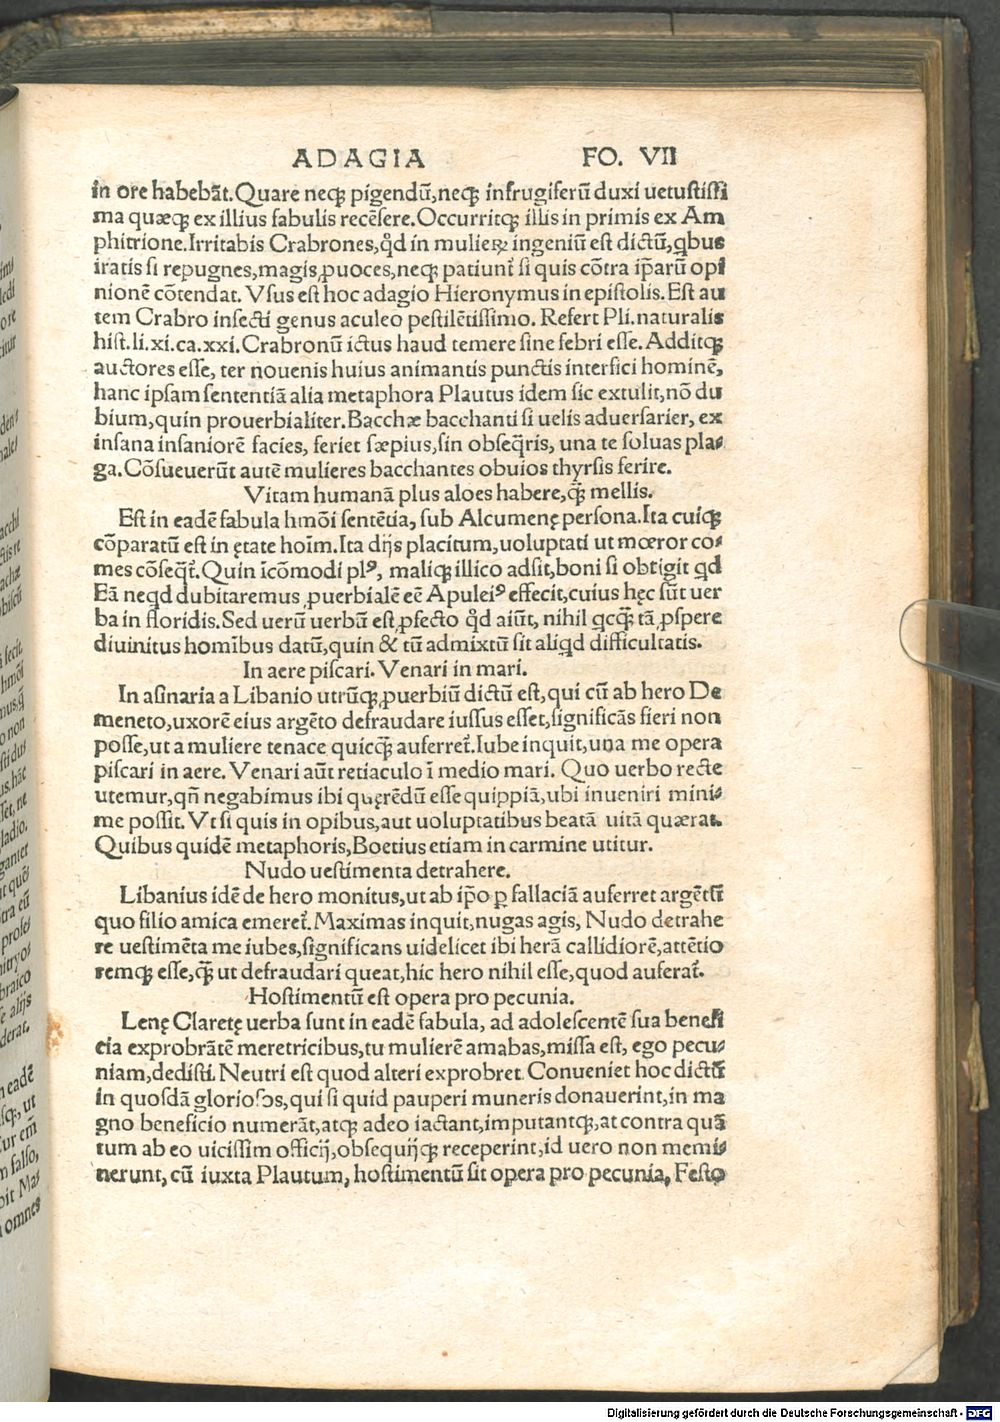 ADAGIA FO. VII
in ore habebāt. Quare neqꝫ pigendū, neqꝫ infrugiferū duxi uetustissi
ma quæqꝫ ex illius fabulis recēsere. Occurritqꝫ illis in primis ex Am
phitrione. Irritabis Crabrones, qd̉ in mulieꝝ ingeniū est dictū, qbus
iratis si repugnes, magis ꝓuoces, neqꝫ patiunt̃ si quis cōtra ip̄arū opi
nionē cōtendat. Vsus est hoc adagio Hieronymus in epistolis. Est au
tem Crabro insecti genus aculeo pestilētissimo. Refert Pli. naturalis
hist. li. xi. ca. xxi. Crabronū ictus haud temere sine febri esse. Additqꝫ
auctores esse, ter nouenis huius animantis punctis interfici hominē,
hanc ipsam sententiā alia metaphora Plautus idem sic extulit, nō du
bium, quin prouerbialiter. Bacchæ bacchanti si uelis aduersarier, ex
insana insaniorē facies, feriet sæpius, sin obseq̄ris, una te soluas pla-
ga. Cōsueuerūt autē mulieres bacchantes obuios thyrsis ferire.
Vitam humanā plus aloes habere, q̄ꝫ mellis.
Est in eadē fabula hmōi sentētia, sub Alcumenę persona. Ita cuiqꝫ
cōparatū est in ętate hoīm. Ita dijs placitum, uoluptati ut mœror co-
mes cōseq̄t̃. Quin īcōmodi plꝰ, maliqꝫ illico adsit, boni si obtigit qd
Eā neqd dubitaremus ꝓuerbialē eē Apuleiꝰ effecit, cuius hęc sūt uer
ba in floridis. Sed uerū uerbū est ꝓfecto qd̉ aiūt, nihil qcq̄ꝫ tā ꝓspere
diuinitus homībus datū, quin & tū admixtū sit aliqd difficultatis.
In aere piscari. Venari in mari.
In asinaria a Libanio utrūqꝫ ꝓuerbiū dictū est, qui cū ab hero De
meneto, uxorē eius argēto defraudare iussus esset, significās fieri non
posse, ut a muliere tenace quicq̄ꝫ auferret̃. Iube inquit, una me opera
piscari in aere. Venari aūt retiaculo ī medio mari. Quo uerbo recte
utemur, qn̄ negabimus ibi quęrēdū esse quippiā, ubi inueniri mini-
me possit. Vt si quis in opibus, aut uoluptatibus beatā uitā quærat.
Quibus quidē metaphoris, Boetius etiam in carmine utitur.
Nudo uestimenta detrahere.
Libanius idē de hero monitus, ut ab ip̄o ꝑ fallaciā auferret argētū
quo filio amica emeret̃. Maximas inquit, nugas agis, Nudo detrahe
re uestimēta me iubes, significans uidelicet ibi herā callidiorē, attētio
remqꝫ esse, q̄ꝫ ut defraudari queat, hic hero nihil esse, quod auferat̃.
Hostimentū est opera pro pecunia.
Lenę Claretę uerba sunt in eadē fabula, ad adolescentē sua benefi
cia exprobrātē meretricibus, tu mulierē amabas, missa est, ego pecu-
niam, dedisti. Neutri est quod alteri exprobret. Conueniet hoc dictū
in quosdā gloriosos, qui si quid pauperi muneris donauerint, in ma
gno beneficio numerāt, atqꝫ adeo iactant, imputantqꝫ, at contra quā
tum ab eo uicissim officij, obsequijqꝫ receperint, id uero non memi-
nerunt, cū iuxta Plautum, hostimentū sit opera pro pecunia, Festo
Digitalisierung gefördert durch die Deutsche Forschungsgemeinschaft - DFG